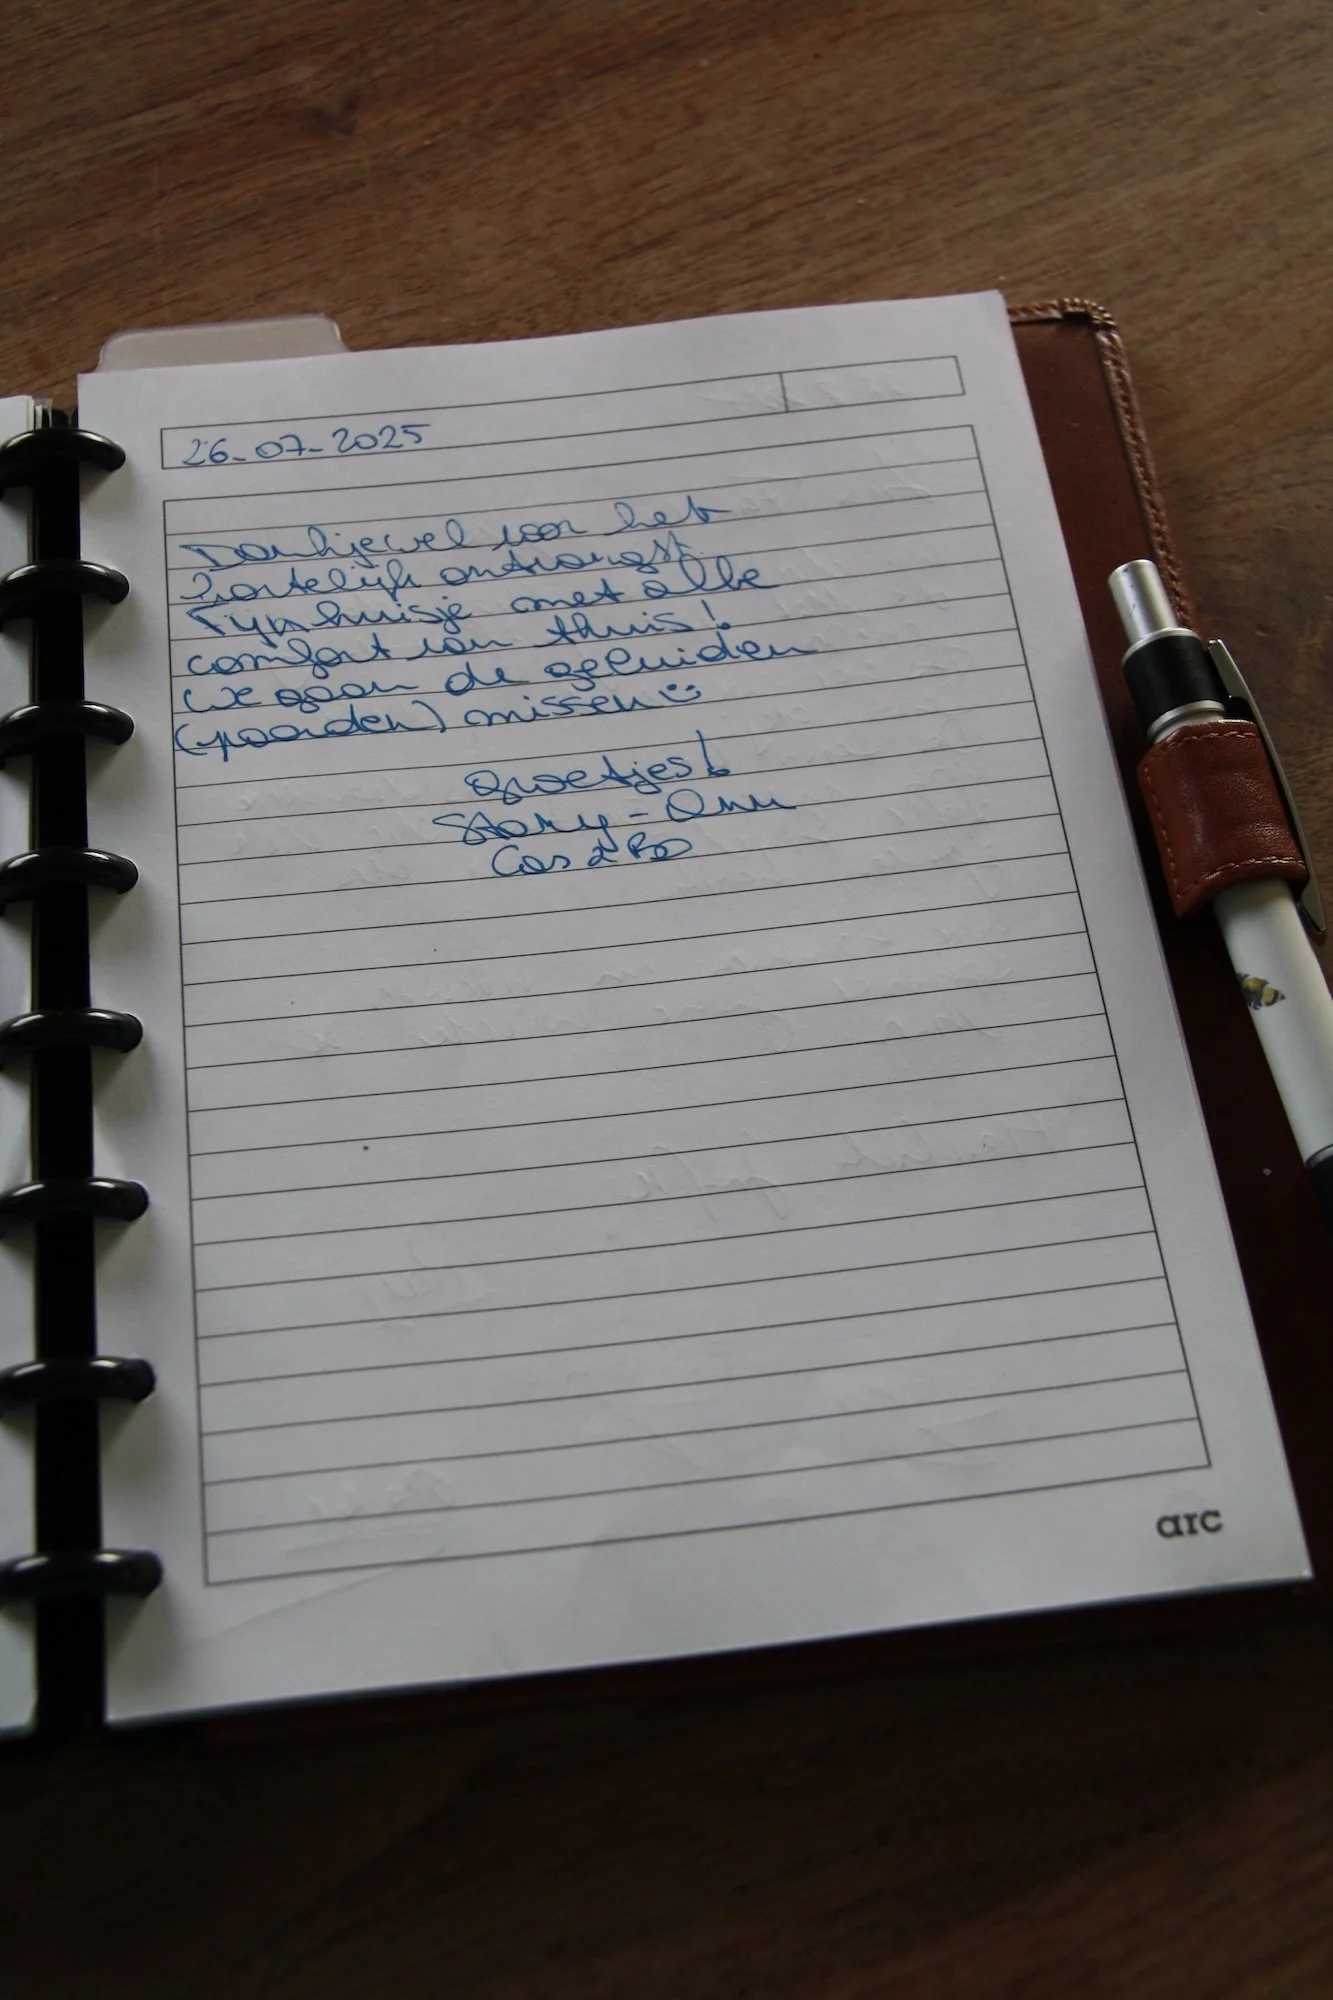 26-07-2025
Dankjewel voor het
hartelijk ontvangst.
Fijn huisje met alle
comfort van thuis!
We gaan de geluiden
(paarden) missen
Groetjes!
Stacy -
Cas & Bo
arc